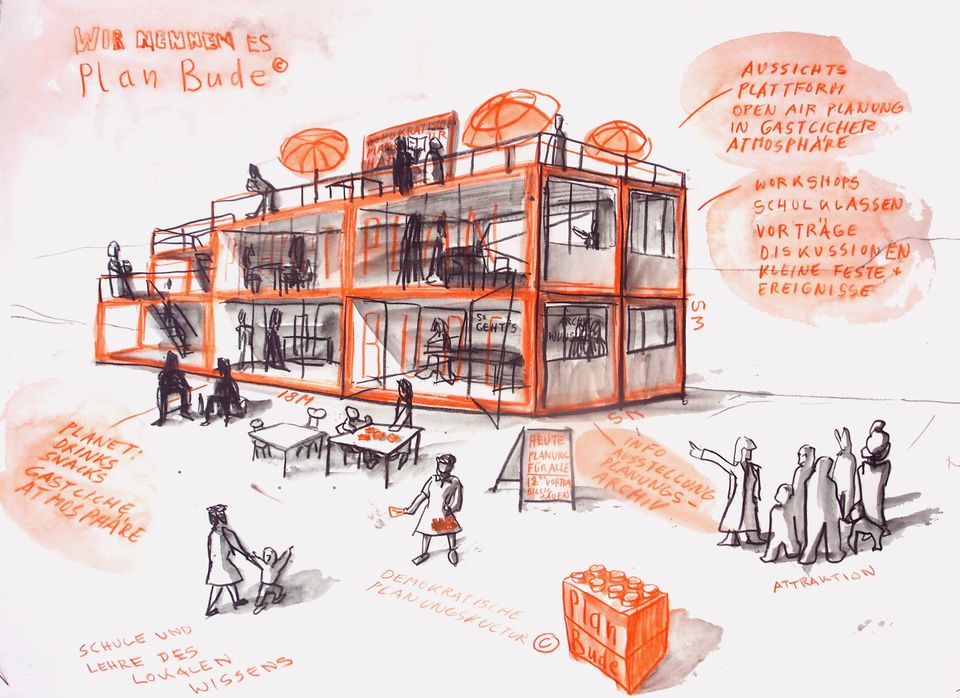 WIR NENNEN ES
Plan Bude©
AUSSICHTS
PLATTFORM
OPEN AIR PLANUNG
IN GASTLICHER
ATMOSPHÄRE
WORKSHOPS
SCHULKLASSEN
VORTRÄGE
DISKUSSIONEN
KLEINE FESTE +
EREIGNISSE
PLAN
BUDE
SO
GEHT'S
ARCHIV
18M
5M
PLANET:
DRINKS
SNACKS
GASTLICHE
ATMOSPHÄRE
HEUTE
PLANUNG
FÜR ALLE
18°° VORTRAG
BILLIG
BAUEN
INFO
AUSSTELLUNG
PLANUNGS-
ARCHIV
ATTRAKTION
DEMOKRATISCHE
PLANUNGSKULTUR ©
SCHULE UND
LEHRE DES
LOKALEN
WISSENS
Plan
Bude